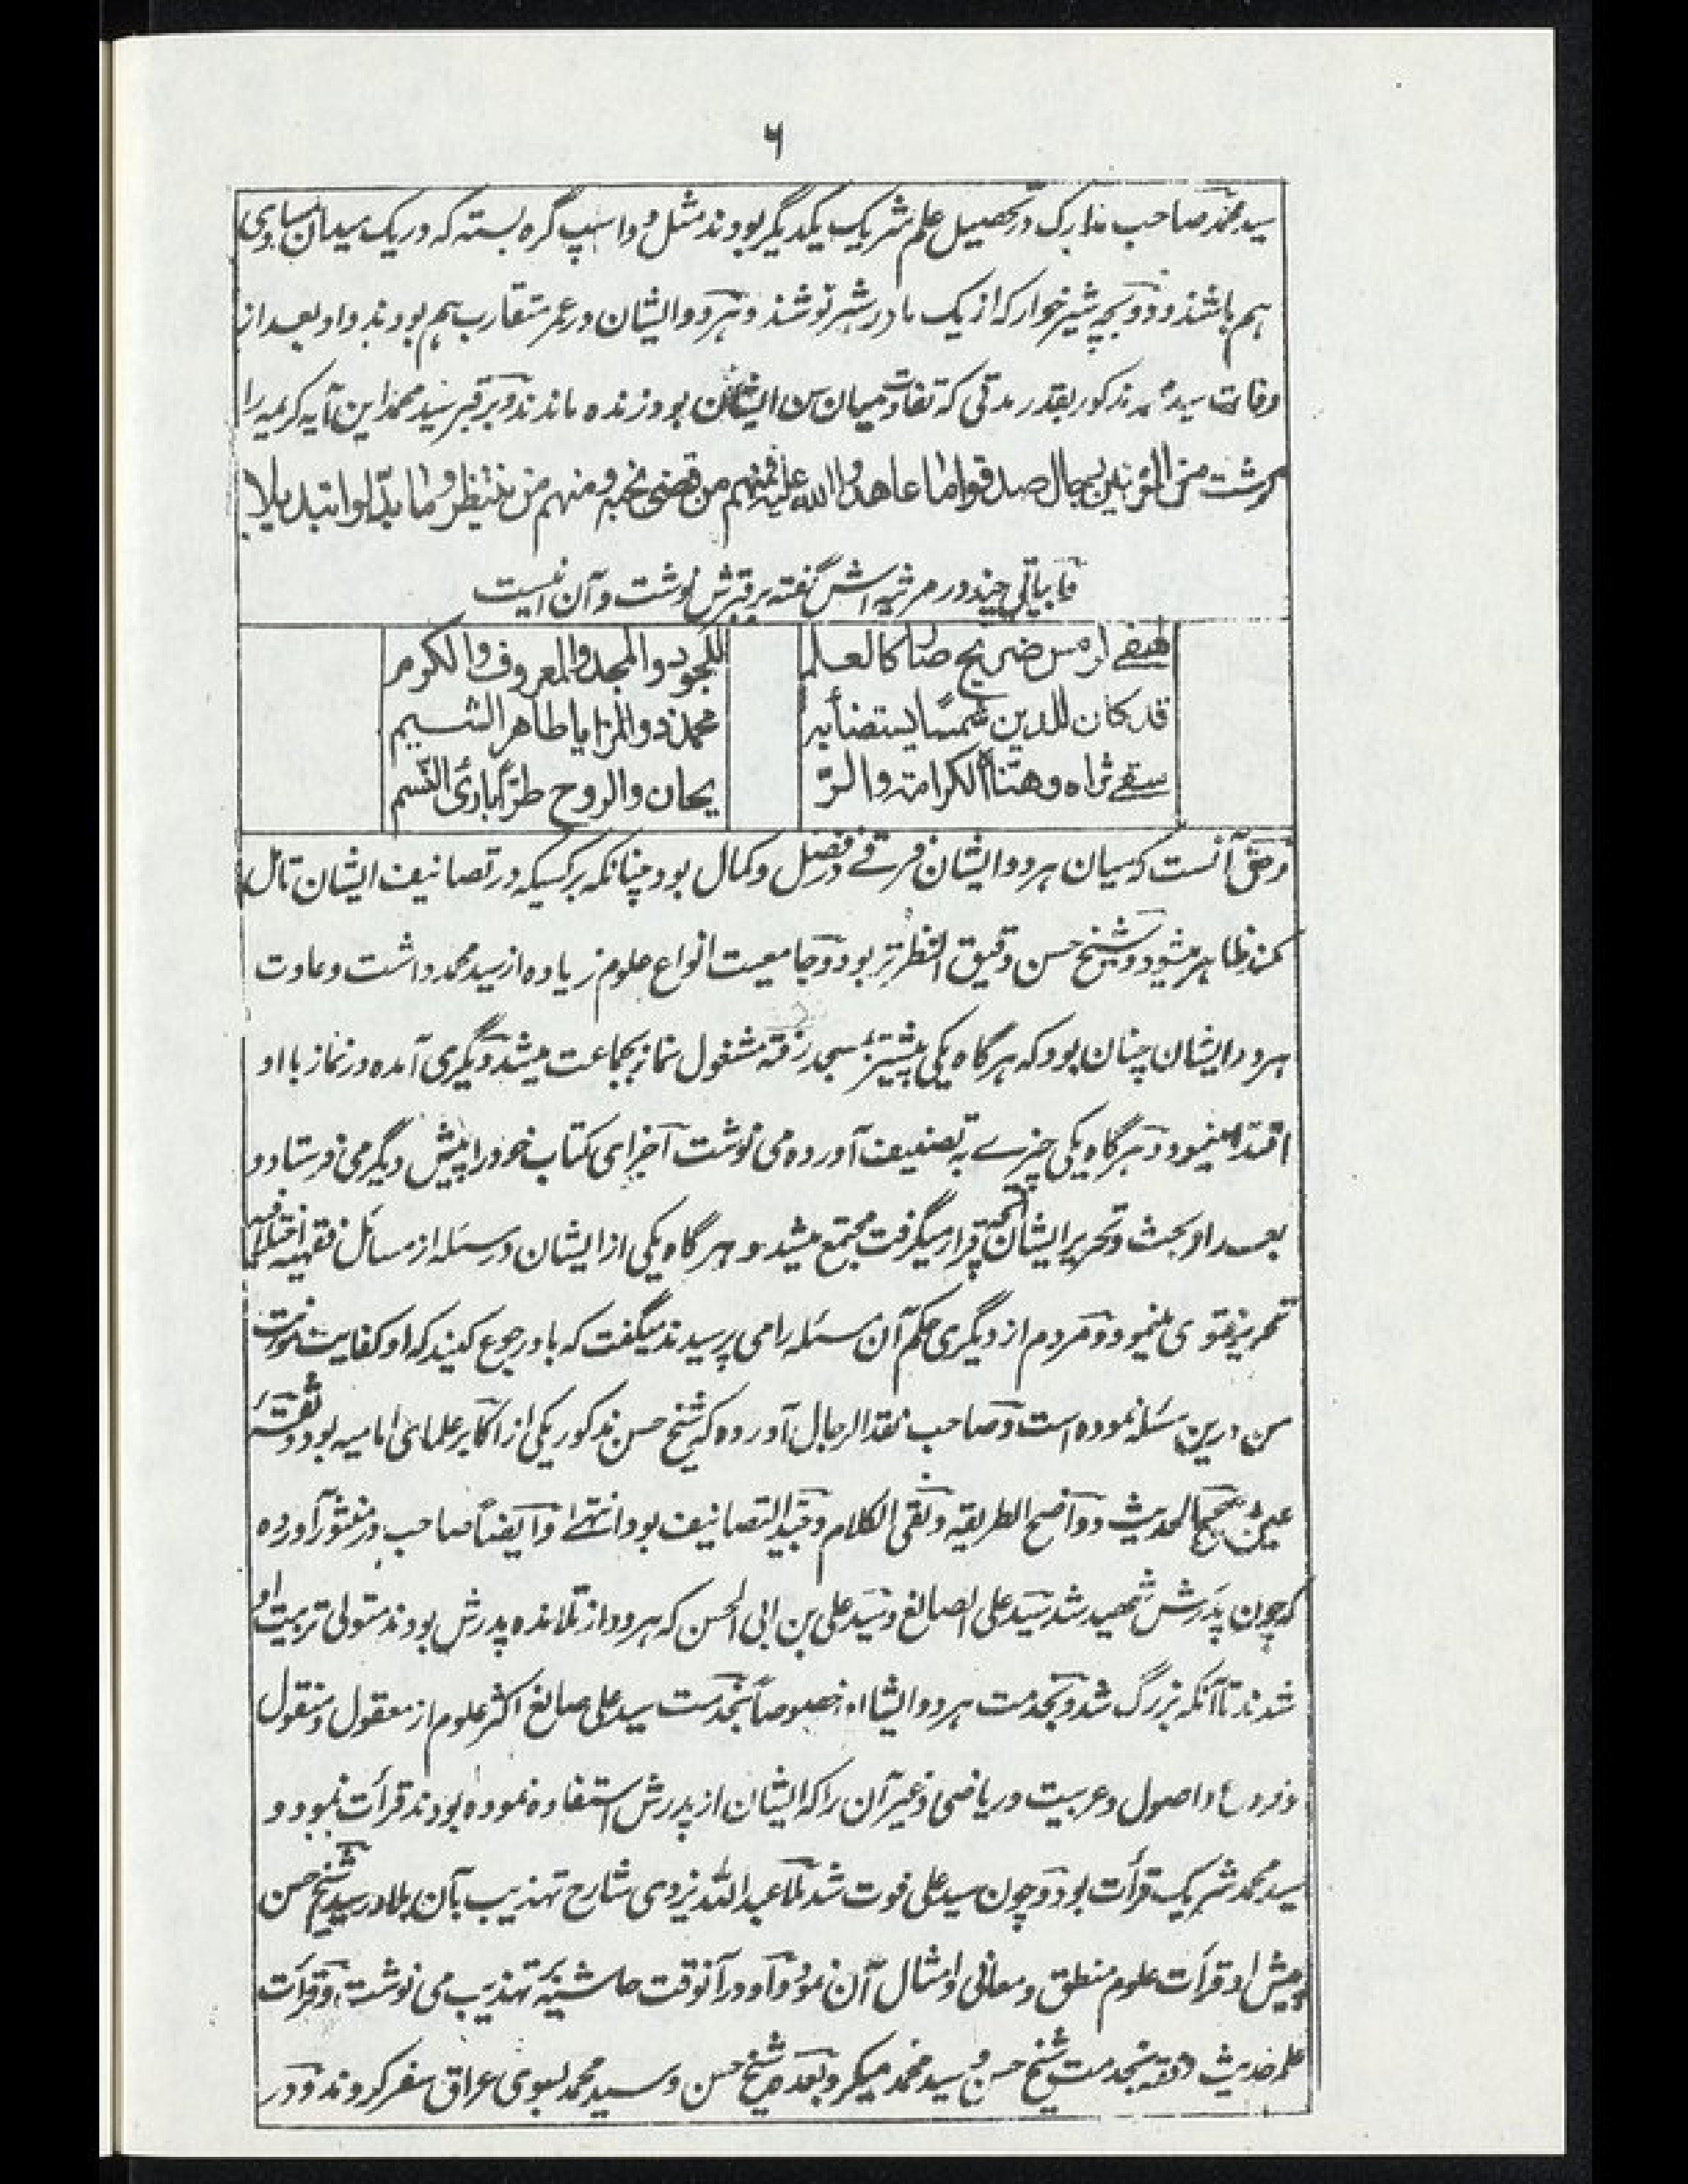 ٦
سید محمد صاحب مدارک در تحصیل علم شریک یکدیگر بودند مثل دو اسپ گره بسته که در یک میدان مساوی
هم باشند و دو بچه شیرخوار که از یک مادر شیر نوشند و هر دو ایشان در عمر متقارب هم بودند و او بعد از
وفات سید محمد مذکور بقدر مدتی که تفاوت میان سن ایشان بود زنده ماندند و بر قبر سید محمد این آیه کریمه را
نوشت من المؤمنین رجال صدقوا ما عاهدوا الله علیه فمنهم من قضی نحبه و منهم من ینتظر و ما بدلوا تبدیلا
و ابیاتی چند در مرثیه اش گفته بر قبرش نوشت و آن اینست
لهفی لرمس ضریح صار کالعلم للجود والمجد والمعروف والکرم
قد کان للدین شمسا یستضاء به محمد ذو المزایا طاهر الشیم
سقی ثراه وهناه الکرامة والر یحان والروح طرا باری النسم
و حق آنست که میان هر دو ایشان فرقی در فضل و کمال بود چنانکه بر کسیکه در تصانیف ایشان تامل
کند ظاهر میشود و شیخ حسن دقیق النظر تر بود و جامعیت انواع علوم زیاده از سید محمد داشت و عادت
هر دو ایشان چنان بود که هر گاه یکی پیشتر بمسجد رفته مشغول نماز بجماعت میشد دیگری آمده در نماز با او
اقتدا مینمود و هر گاه یکی چیزے به تصنیف آورده می نوشت اجزای کتاب خود را پیش دیگر می فرستاد و
بعد او بحث و تحریر ایشان آنچه قرار میگرفت مجتمع میشد و هر گاه یکی از ایشان در مسئله از مسائل فقهیه اختلافیه
تحریر فتوی مینمود و مردم از دیگری حکم آن مسئله را می پرسیدند میگفت که باو رجوع کنید که او کفایت مؤنت
من درین مسئله نموده است و صاحب نقد الرجال آورده که شیخ حسن مذکور یکی از اکابر علمای امامیه بود و ثقة
عین صحیح الحدیث و واضح الطریقه و نقی الکلام و جید التصانیف بود انتهی و ایضا صاحب در منثور آورده
که چون پدرش شهید شد سید علی الصائغ و سید علی بن ابی الحسن که هر دو از تلامذه پدرش بودند متولی تربیت او
شدند تا آنکه بزرگ شد و بخدمت هر دو ایشان خصوصا بخدمت سید علی صائغ اکثر علوم از معقول و منقول
و فروع و اصول و عربیت و ریاضی و غیر آن را که ایشان از پدرش استفاده نموده بودند قرأت نمود و
سید محمد شریک قرأت بود و چون سید علی فوت شد ملا عبد الله یزدی شارح تهذیب بآن بلاد رسید شیخ حسن
پیش او قرأت علوم منطق و معانی و امثال آن نمود و او در آنوقت حاشیه تهذیب می نوشت و قرأت
علم حدیث و فقه بخدمت شیخ حسن و سید محمد میکرد بعده شیخ حسن و سید محمد بسوی عراق سفر کردند و در